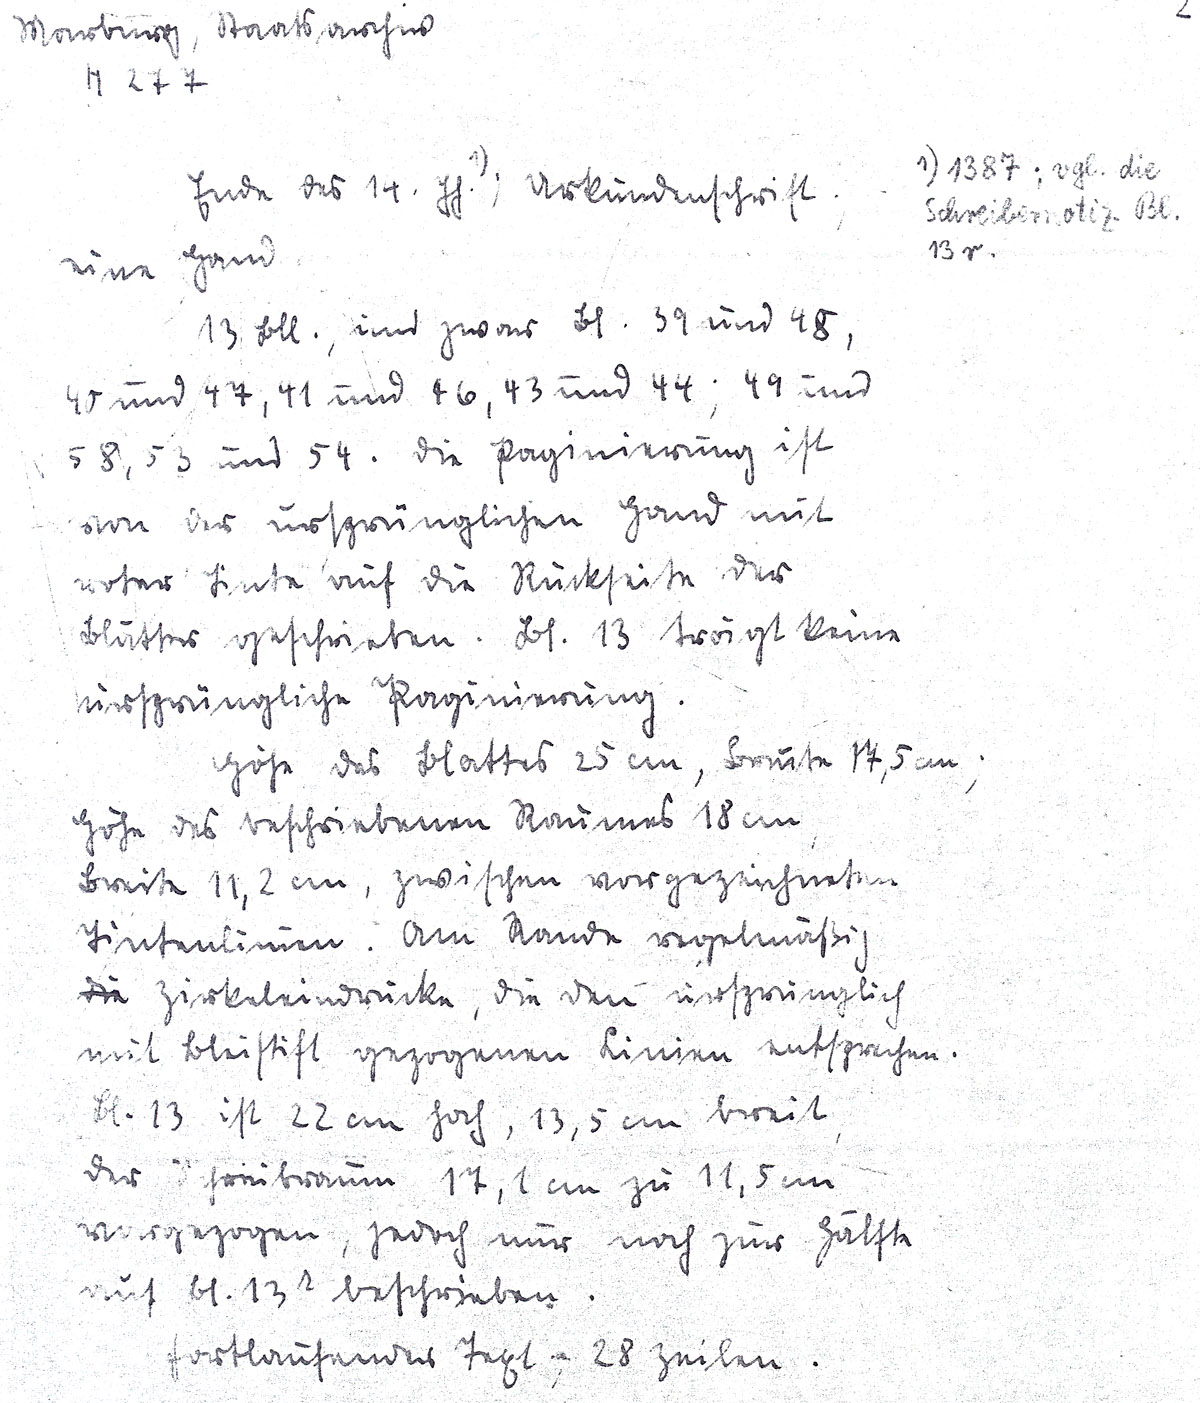 2
Marburg, Staatsarchiv
H 277
Ende des 14. Jh.¹); Urkundenschrift.
eine Hand
1) 1387; vgl. die
Schreibernotiz Bl.
13r.
13 Bll., und zwar Bl. 39 und 48,
40 und 47, 41 und 46, 43 und 44; 49 und
58, 53 und 54. Die Paginierung ist
von der ursprünglichen Hand mit
roter Tinte auf die Rückseite der
Blätter geschrieben. Bl. 13 trägt keine
ursprüngliche Paginierung.
Höhe des Blattes 25 cm, Breite 17,5 cm;
Höhe des beschriebenen Raumes 18 cm,
Breite 11,2 cm, zwischen vorgezeichneten
Tintenlinien. Am Rande regelmäßig
die Zirkeleindrücke, die den ursprünglich
mit Bleistift gezogenen Linien entsprechen.
Bl. 13 ist 22 cm hoch, 13,5 cm breit,
der Schreibraum 17,1 cm zu 11,5 cm
vorgezogen, jedoch nur noch zur Hälfte
auf Bl. 13r beschrieben.
Fortlaufender Text; 28 Zeilen.